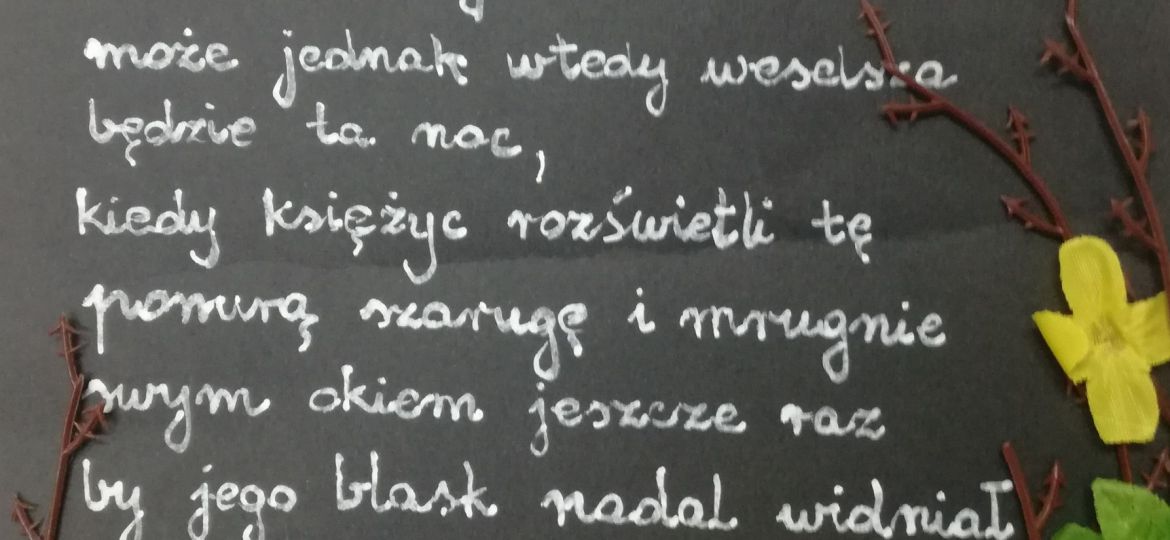 może jednak wtedy weselsza
będzie ta noc,
kiedy księżyc rozświetli tę
ponurą szarugę i mrugnie
swym okiem jeszcze raz
by jego blask nadal widniał